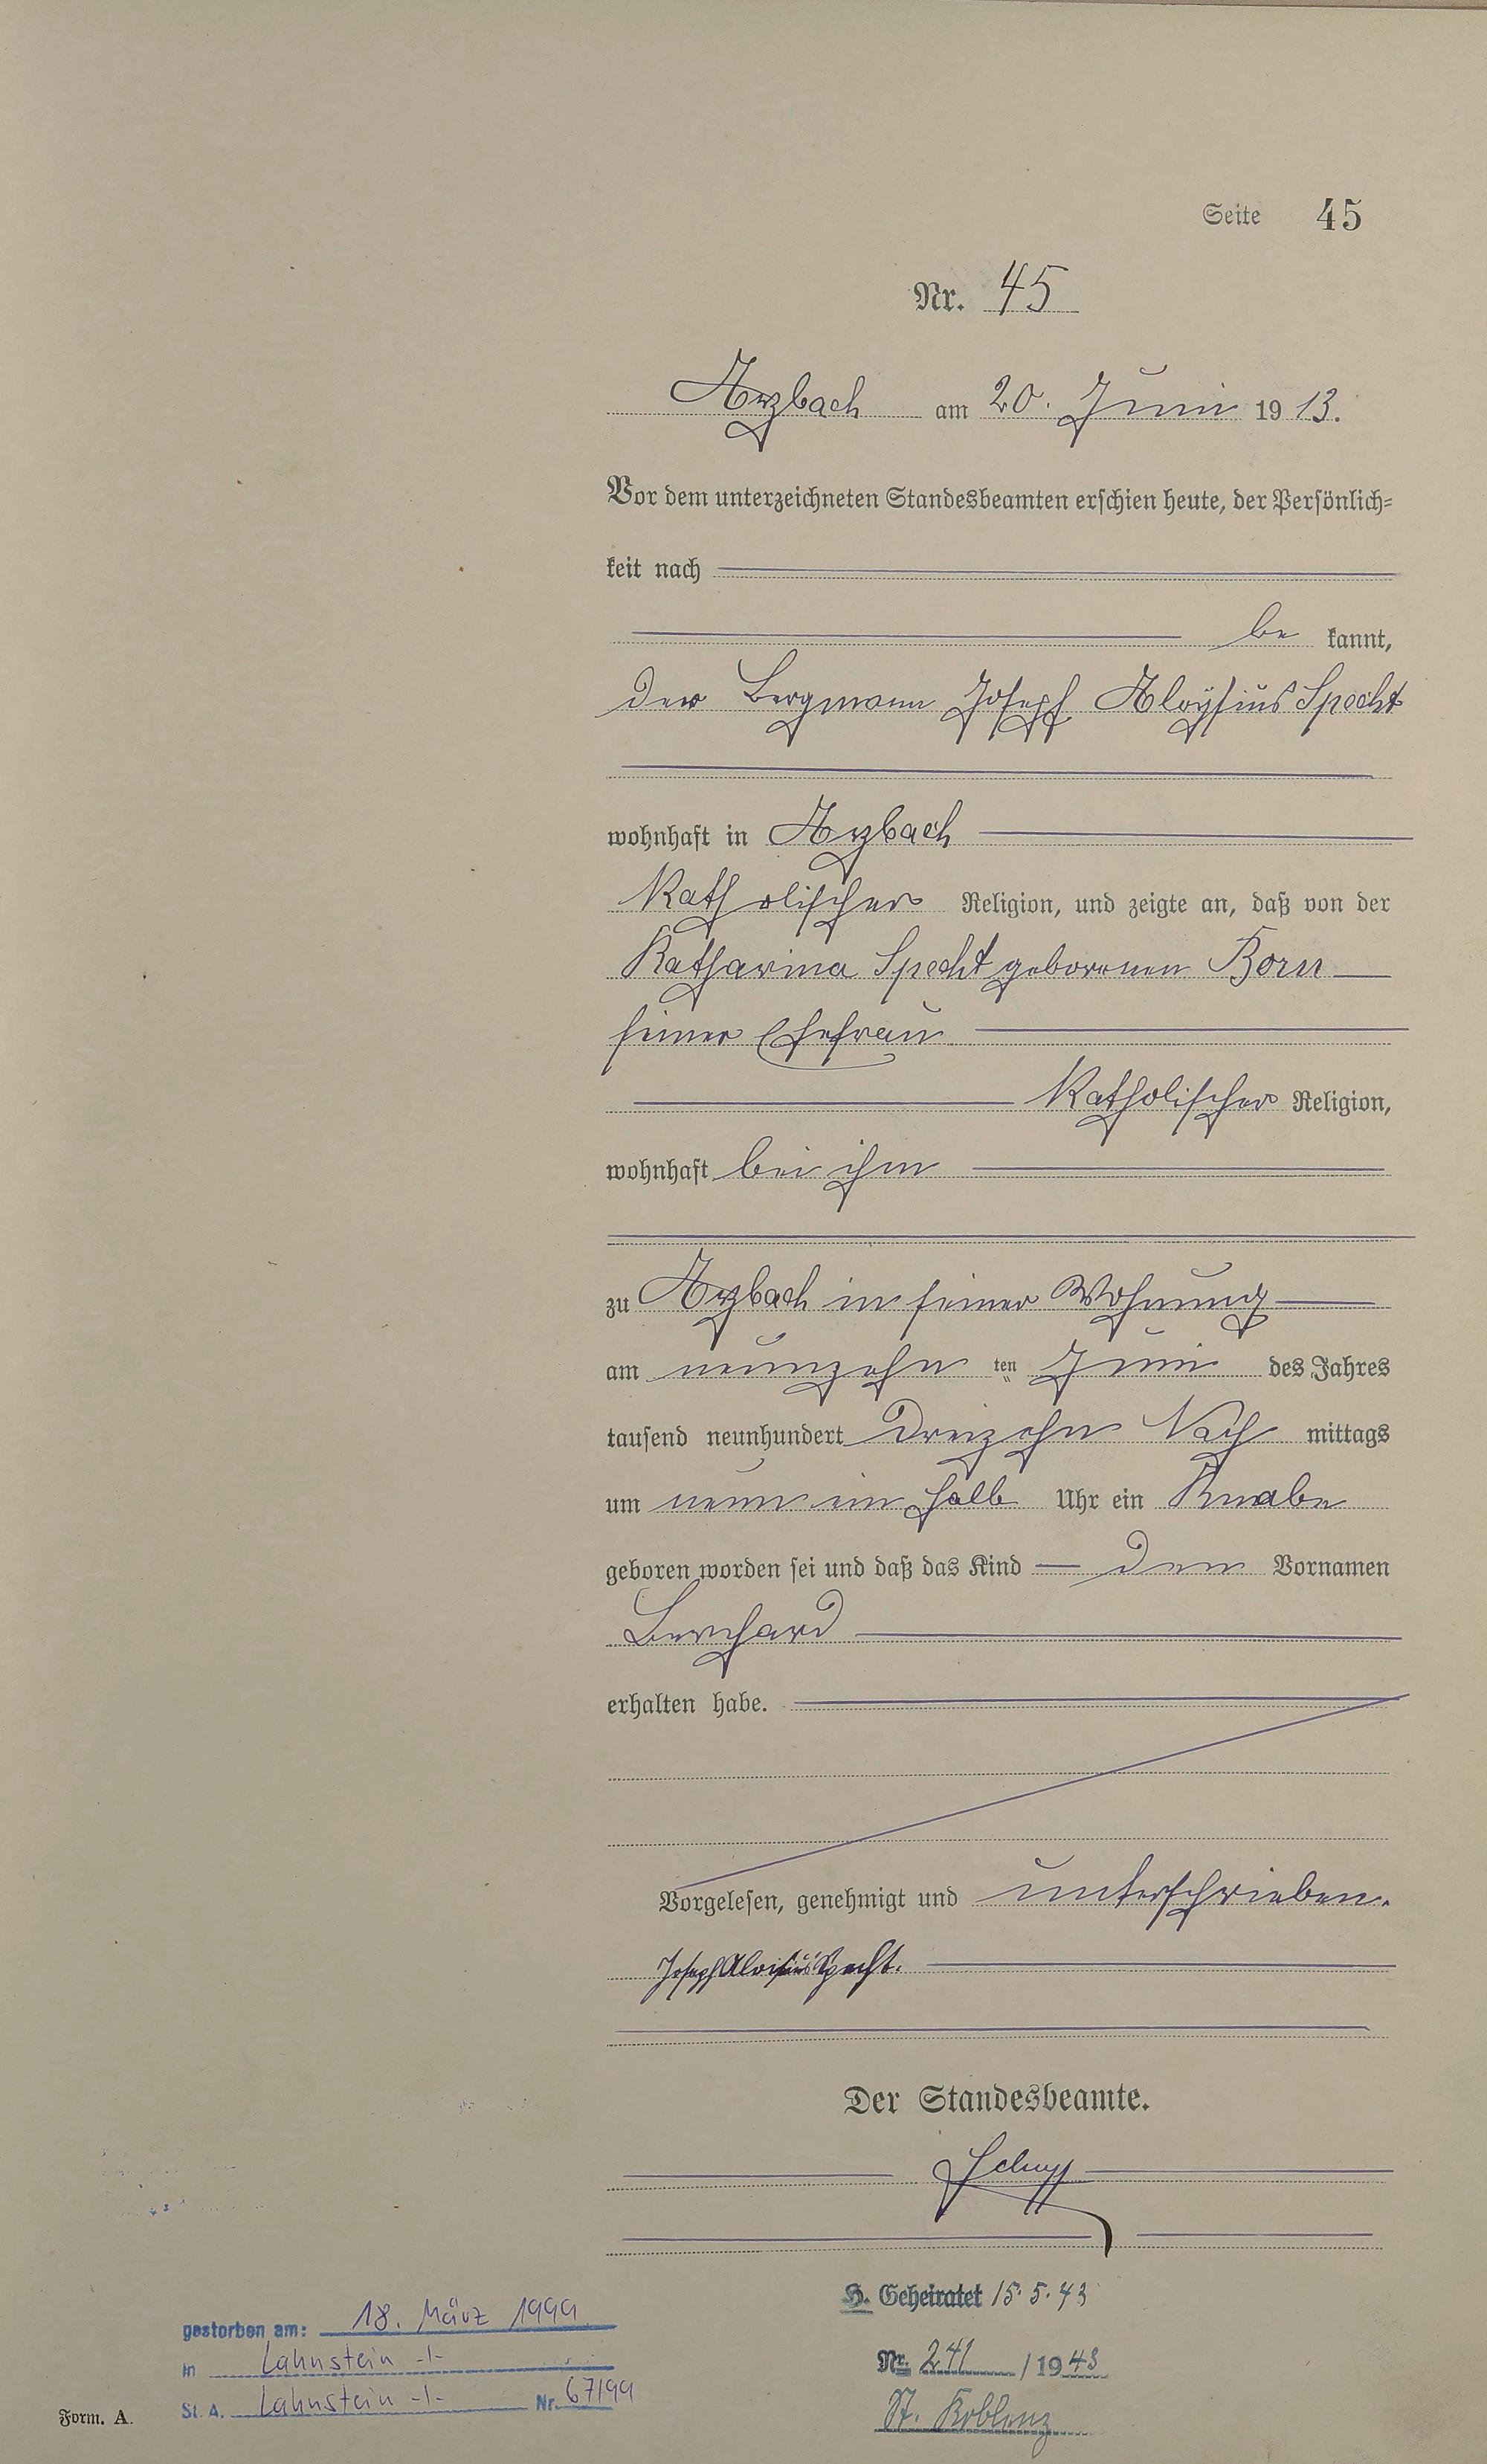 Seite 45
Nr. 45
Arzbach am 20. Juni 1913.
Vor dem unterzeichneten Standesbeamten erschien heute, der Persönlich=
keit nach
be kannt,
der Bergmann Joseph Aloysius Specht
wohnhaft in Arzbach
Katholischer Religion, und zeigte an, daß von der
Katharina Specht geborenen Born
seiner Ehefrau
Katholischer Religion,
wohnhaft bei ihm
zu Arzbach in seiner Wohnung
am neunzehn ten Juni des Jahres
tausend neunhundert dreizehn Nach mittags
um neun ein halb Uhr ein Knabe
geboren worden sei und daß das Kind den Vornamen
Bernhard
erhalten habe.
Vorgelesen, genehmigt und unterschrieben.
Joseph Aloisius Specht.
Der Standesbeamte.
H. Geheiratet 15.5.43
Nr. 241/1943
St. Koblenz
gestorben am: 18. März 1999
in Lahnstein -1-
St. A. Lahnstein -1- Nr. 67/99
Form. A.